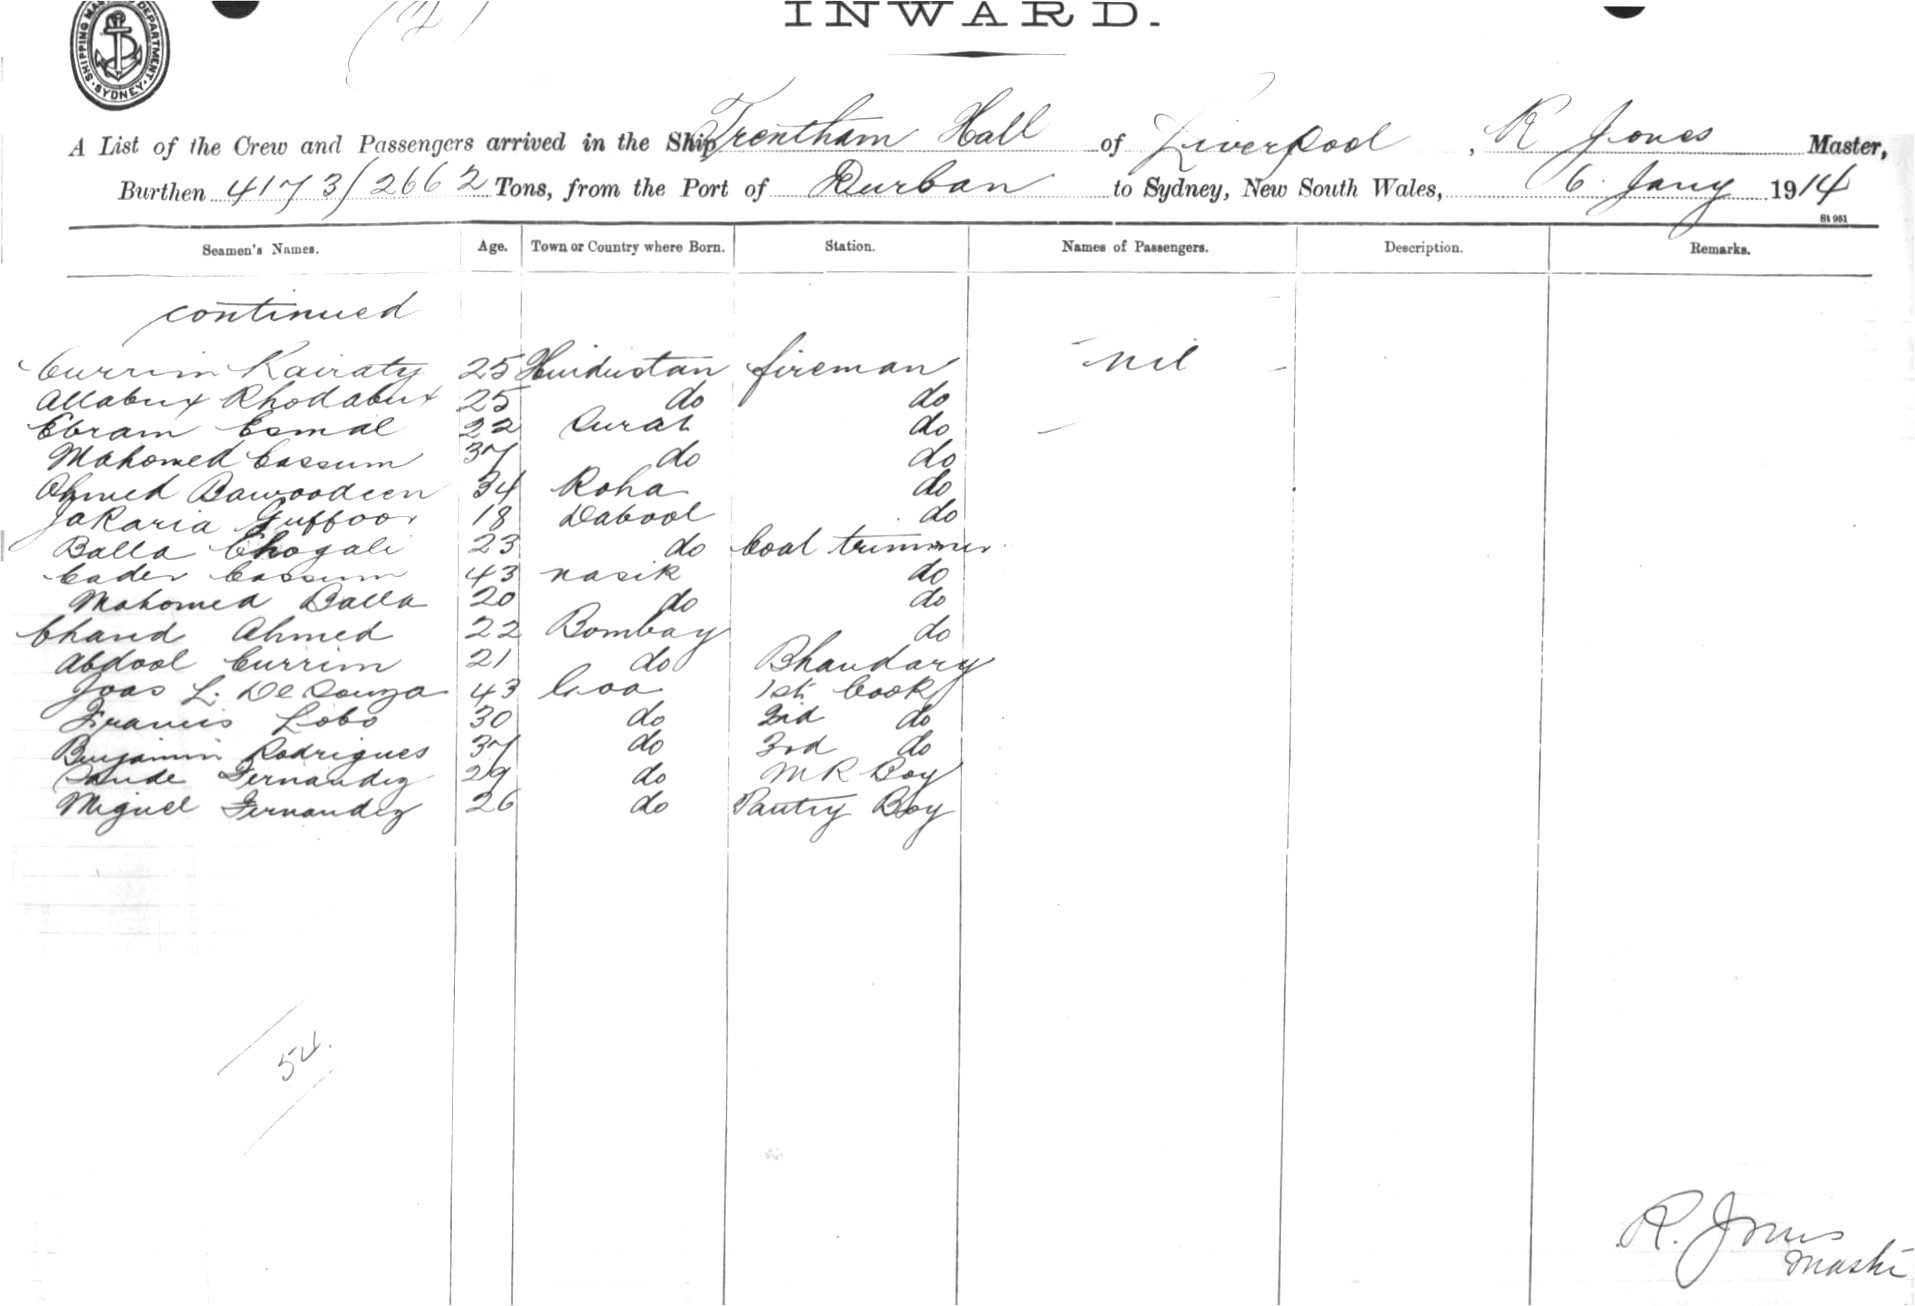 (2)
INWARD.
SHIPPING MASTER'S DEPARTMENT SYDNEY
A List of the Crew and Passengers arrived in the Ship Trentham Hall of Liverpool, R Jones Master,
Burthen 4173/2662 Tons, from the Port of Durban to Sydney, New South Wales, 6. Jany 1914
St 951
Seamen's Names. Age. Town or Country where Born. Station. Names of Passengers. Description. Remarks.
continued
Currim Kairaty 25 Hindustan fireman - nil -
Allabux Khodabux 25 do do
Ebram Esmal 22 Surat do
Mahomed Cassum 37 do do
Ahmed Dawoodeen 34 Roha do
Jakaria Guffoor 18 Dabool do
Balla Chogali 23 do Coal trimmer
Cader Cassum 43 Nasik do
Mahomed Balla 20 do do
Chand Ahmed 22 Bombay do
Abdool Currim 21 do Bhandary
Joao L. De Souza 43 Goa 1st Cook
Francis Lobo 30 do 2nd do
Benjamin Rodrigues 37 do 3rd do
Fernandez 29 do M R Boy
Miguel Fernandez 26 do Pantry Boy
54.
R. Jones
Master